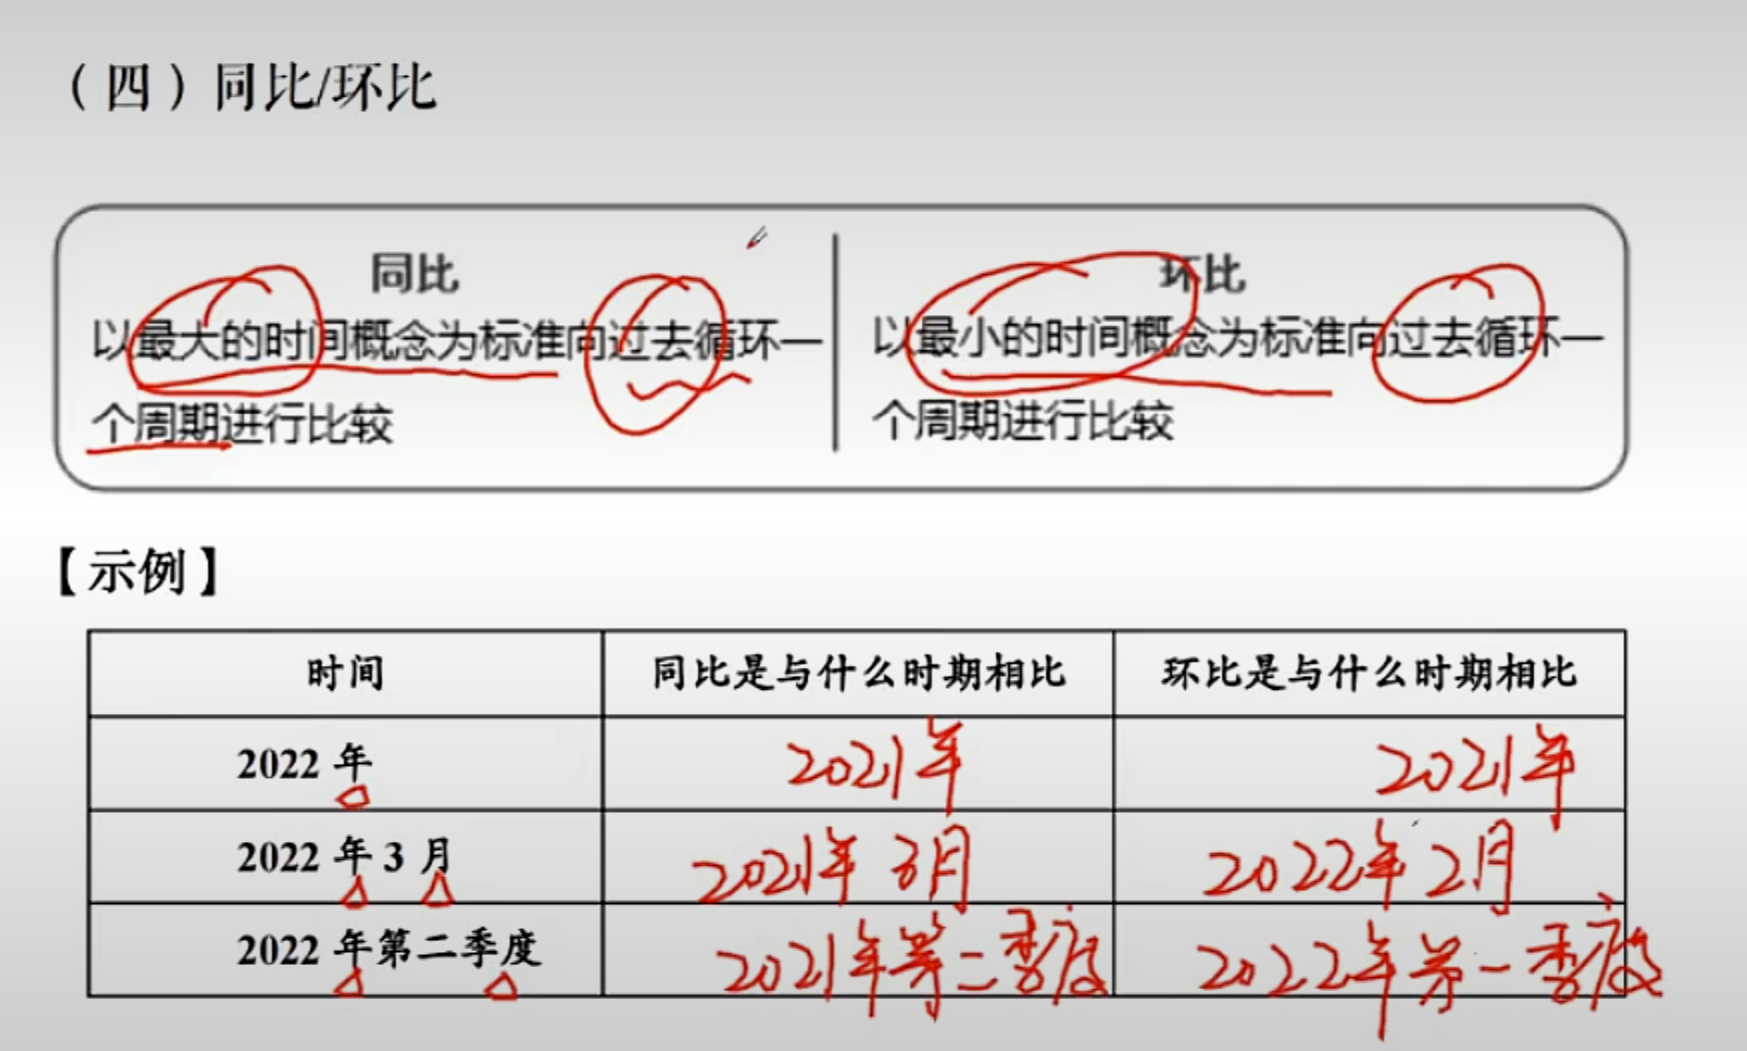 （四）同比/环比
同比
以最大的时间概念为标准向过去循环一
个周期进行比较
环比
以最小的时间概念为标准向过去循环一
个周期进行比较
【示例】
时间 同比是与什么时期相比 环比是与什么时期相比
2022 年 2021年 2021年
2022 年 3 月 2021年 3月 2022年 2月
2022 年第二季度 2021年第二季度 2022年第一季度